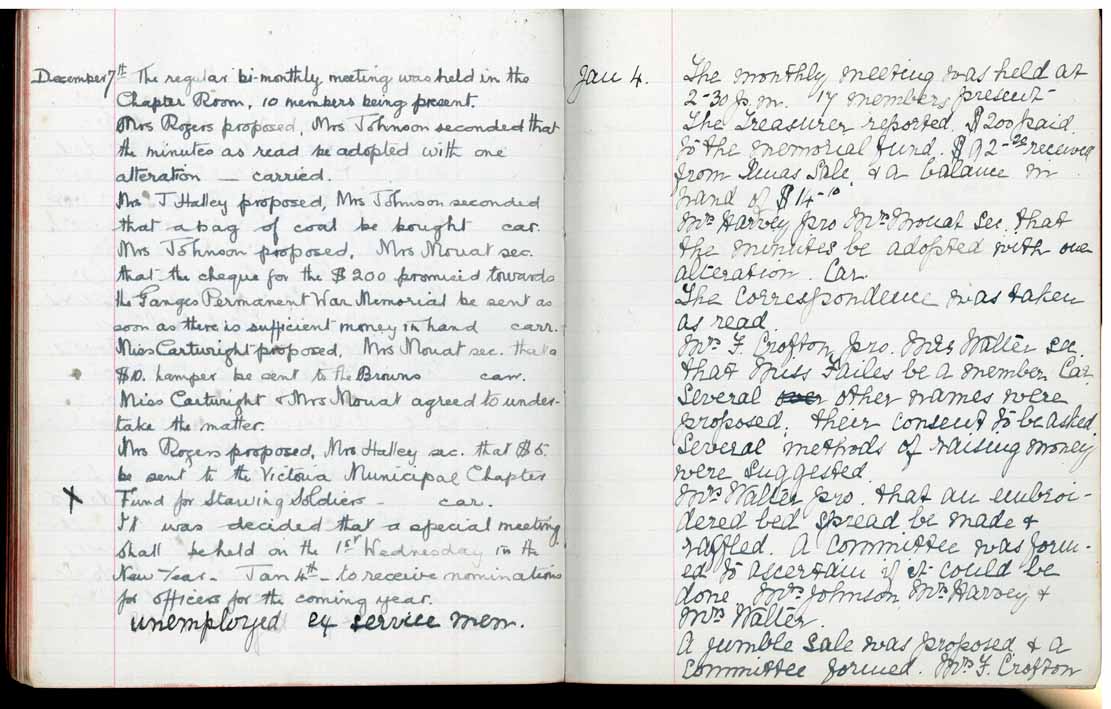 December 7th The regular bi-monthly meeting was held in the
Chapter Room, 10 members being present.
Mrs Rogers proposed, Mrs Johnson seconded that
the minutes as read be adopted with one
alteration — carried.
Mrs J Halley proposed, Mrs Johnson seconded
that a bag of coal be bought car.
Mrs Johnson proposed, Mrs Mouat sec.
that the cheque for the $200 promised towards
the Ganges Permanent War Memorial be sent as
soon as there is sufficient money in hand carr.
Miss Cartwright proposed, Mrs Mouat sec. that a
$10. hamper be sent to the Browns carr.
Miss Cartwright & Mrs Mouat agreed to under-
take the matter.
Mrs Rogers proposed, Mrs Halley sec. that $5.
be sent to the Victoria Municipal Chapter
X Fund for starving soldiers - car.
It was decided that a special meeting
shall be held on the 1st Wednesday in the
New Year - Jan 4th - to receive nominations
for officers for the coming year.
unemployed ex service men.
Jan 4. The monthly meeting was held at
2-30 p.m. 17 members present-
The Treasurer reported. $200 paid
to the memorial fund. $92- received
from Xmas Sale, & a balance in
hand of $14-10
Mrs Harvey pro Mrs Mouat sec. that
the minutes be adopted with one
alteration. Car.
The correspondence was taken
as read.
Mrs F. Crofton pro. Mrs Walter sec.
that Miss Failes be a member Car.
Several over other names were
proposed. their consent to be asked.
Several methods of raising money
were suggested.
Mrs Walter pro. that an embroi-
dered bed spread be made &
raffled. A committee was form-
ed to ascertain if it could be
done Mrs Johnson Mrs Harvey &
Mrs Walter.
A jumble sale was proposed & a
committee formed. Mrs F. Crofton